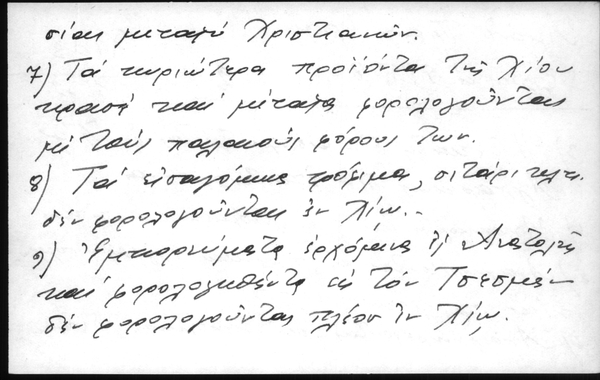 σίας μεταξύ Χριστιανῶν.
7) Τά κυριώτερα προϊόντα τῆς Χίου
κρασί καί μέταξα φορολογοῦνται
μέ τούς παλαιούς φόρους των.
8) Τά εἰσαγόμενα τρόφιμα, σιτάρι κλπ.
δέν φορολογοῦνται ἐν Χίῳ.-
9) Ἐμπορεύματα ἐρχόμενα ἐξ Ἀνατολῆς
καί φορολογηθέντα εἰς τόν Τσεσμέν
δέν φορολογοῦνται πλέον ἐν Χίῳ.